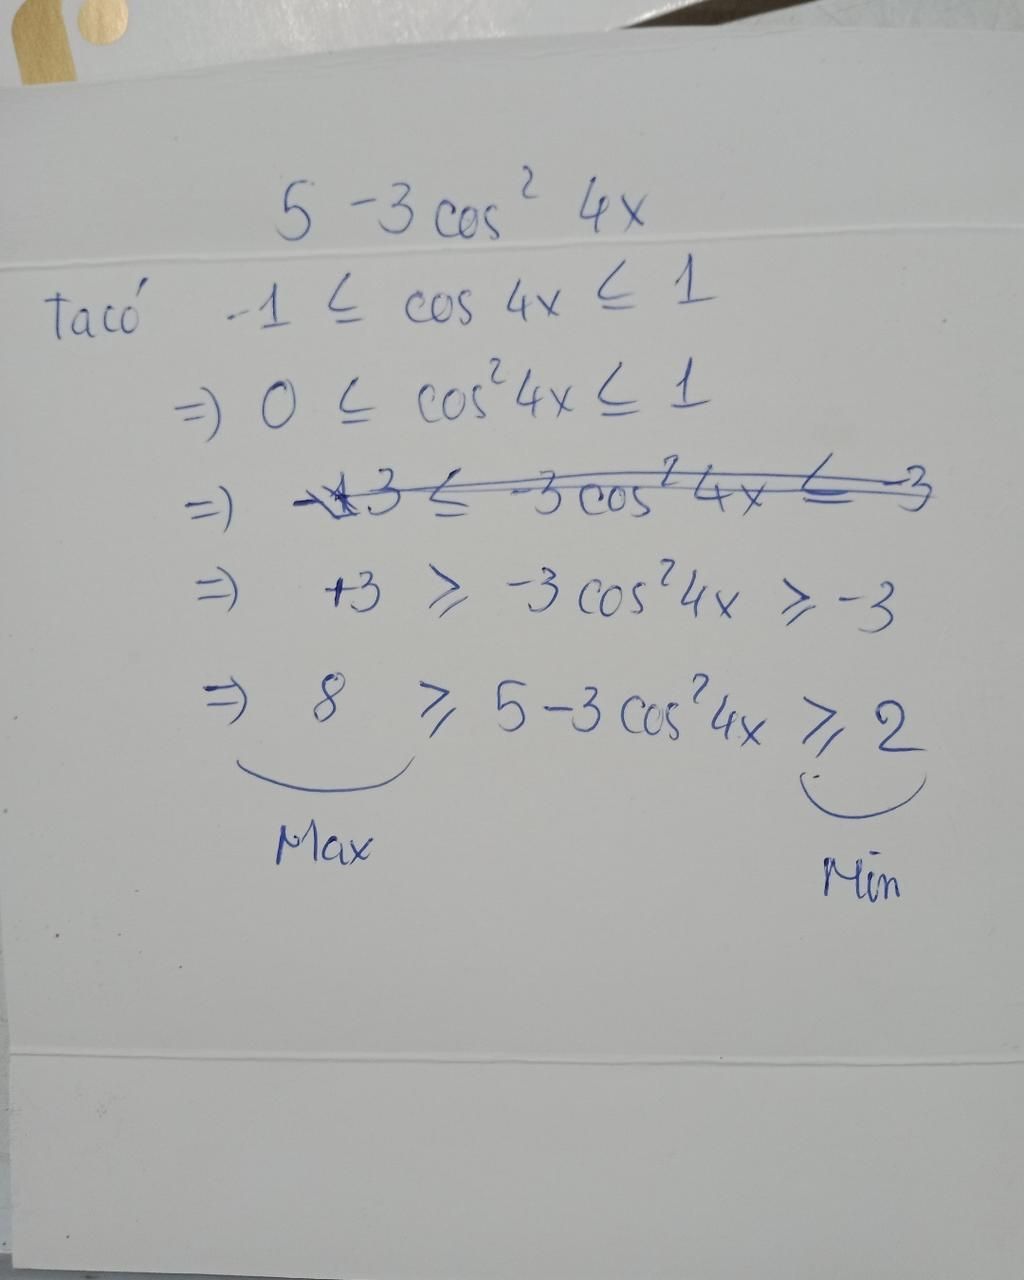 5 -3 cos² 4x
Ta có -1 ≤ cos 4x ≤ 1
=) 0 ≤ cos²4x ≤ 1
=) -3 ≤ -3 cos²4x ≤ -3
=) +3 ≥ -3 cos²4x ≥ -3
=) 8 ≥ 5-3 cos²4x ≥ 2
Max
Min